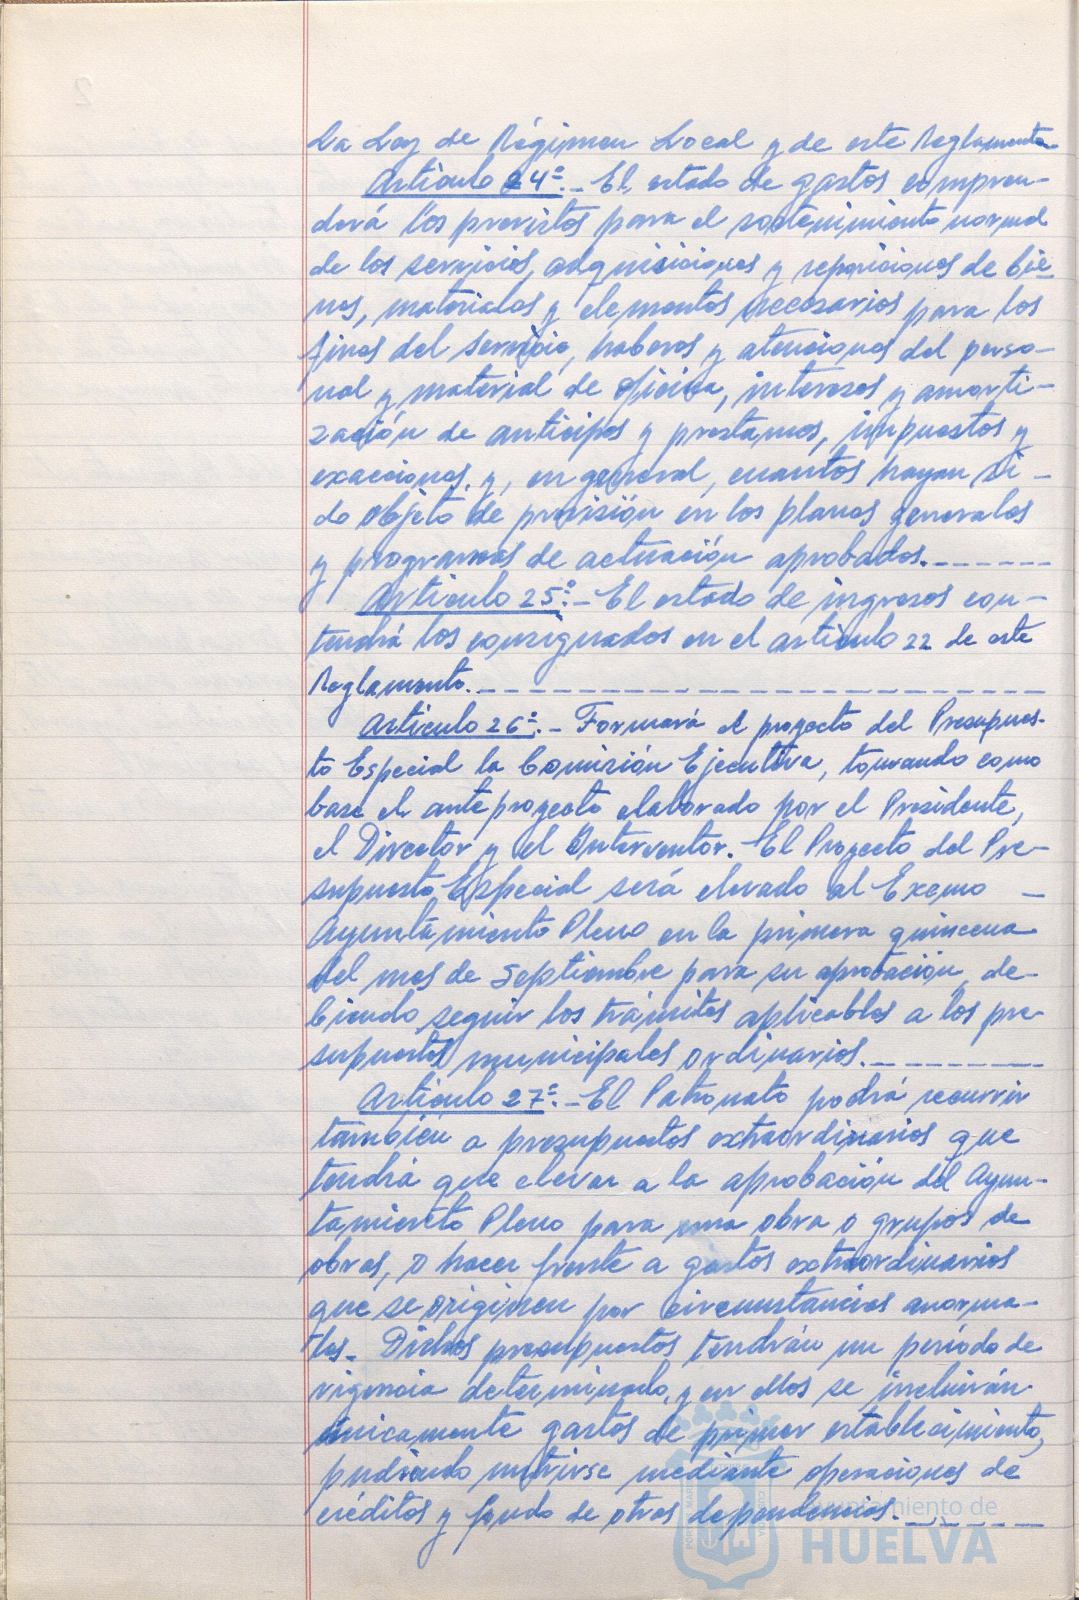 la Ley de Régimen Local y de este Reglamento
Artículo 24º.- El estado de gastos compren-
derá los previstos para el sostenimiento normal
de los servicios, adquisiciones y reposiciones de bie-
nes, materiales y elementos necesarios para los
fines del servicio, haberes y atenciones del perso-
nal y material de oficina, intereses y amorti-
zación de anticipos y prestamos, impuestos y
exacciones, y, en general, cuantos hayan si-
do objeto de previsión en los planes generales
y programas de actuación aprobados.-------
Artículo 25º.- El estado de ingresos con-
tendrá los consignados en el artículo 22 de este
Reglamento.---------------------
Artículo 26º.- Formará el proyecto del Presupues-
to Especial la Comisión Ejecutiva, tomando como
base el anteproyecto elaborado por el Presidente,
el Director y el Interventor. El Proyecto del Pre-
supuesto Especial será elevado al Excmo -
Ayuntamiento Pleno en la primera quincena
del mes de Septiembre para su aprobación, de-
biendo seguir los trámites aplicables a los pre-
supuestos municipales ordinarios.--------
Artículo 27º.- El Patronato podrá recurrir
también a presupuestos extraordinarios que
tendrá que elevar a la aprobación del Ayun-
tamiento Pleno para una obra o grupos de
obras, o hacer frente a gastos extraordinarios
que se originen por circunstancias anorma-
les. Dichos presupuestos tendrán un período de
vigencia determinado, y en ellos se incluirán
únicamente gastos de primer establecimiento,
pudiendo nutrirse mediante operaciones de
créditos y fondo de otras dependencias.------
Ayuntamiento de
HUELVA